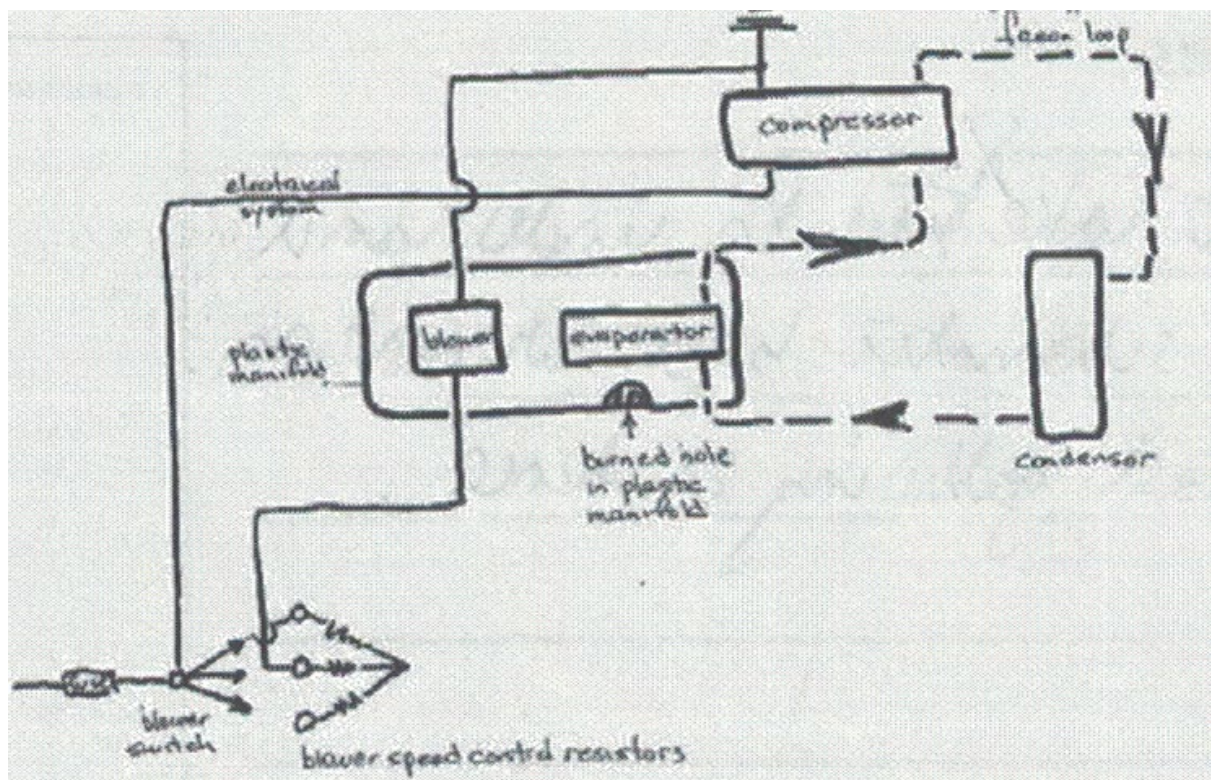 freon loop
compressor
electrical
system
blower
evaporator
plastic
manifold
burned hole
in plastic
manifold
condensor
blower
switch
blower speed control resistors